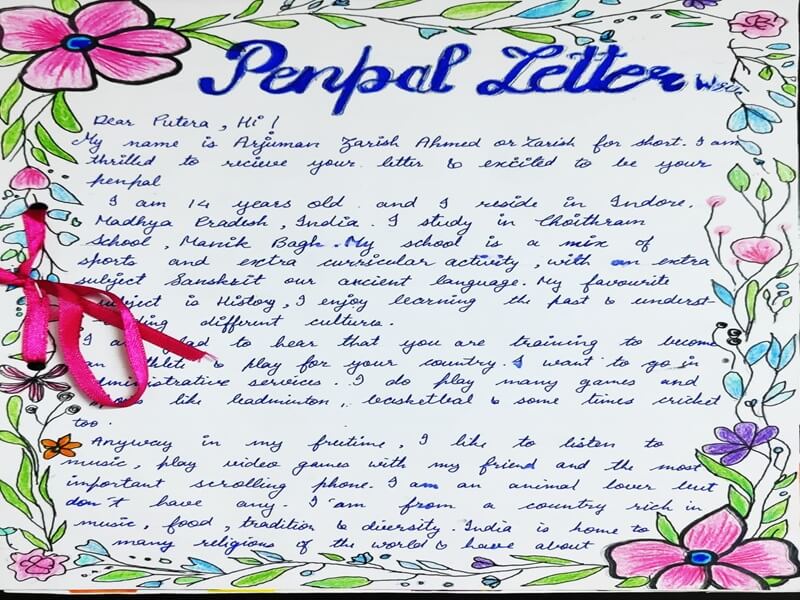 Penpal Letter
Dear Putera, Hi!
My name is Arjuman Zarish Ahmed or Zarish for short. I am
thrilled to recieve your letter & excited to be your
penpal
I am 14 years old and I reside in Indore,
Madhya Pradesh, India. I study in Choithram
School, Manik Bagh. My school is a mix of
sports and extra curricular activity, with an extra
subject Sanskrit our ancient language. My favourite
subject is History, I enjoy learning the past & underst-
different cultures.
I am glad to hear that you are training to become
an athlete & play for your country. I want to go in
administrative services. I do play many games and
like badminton, basketball & some times cricket
too.
Anyway in my freetime, I like to listen to
music, play video games with my friend and the most
important scrolling phone. I am an animal lover but
don't have any. I am from a country rich in
music, food, tradition & diversity. India is home to
many religions of the world & have about